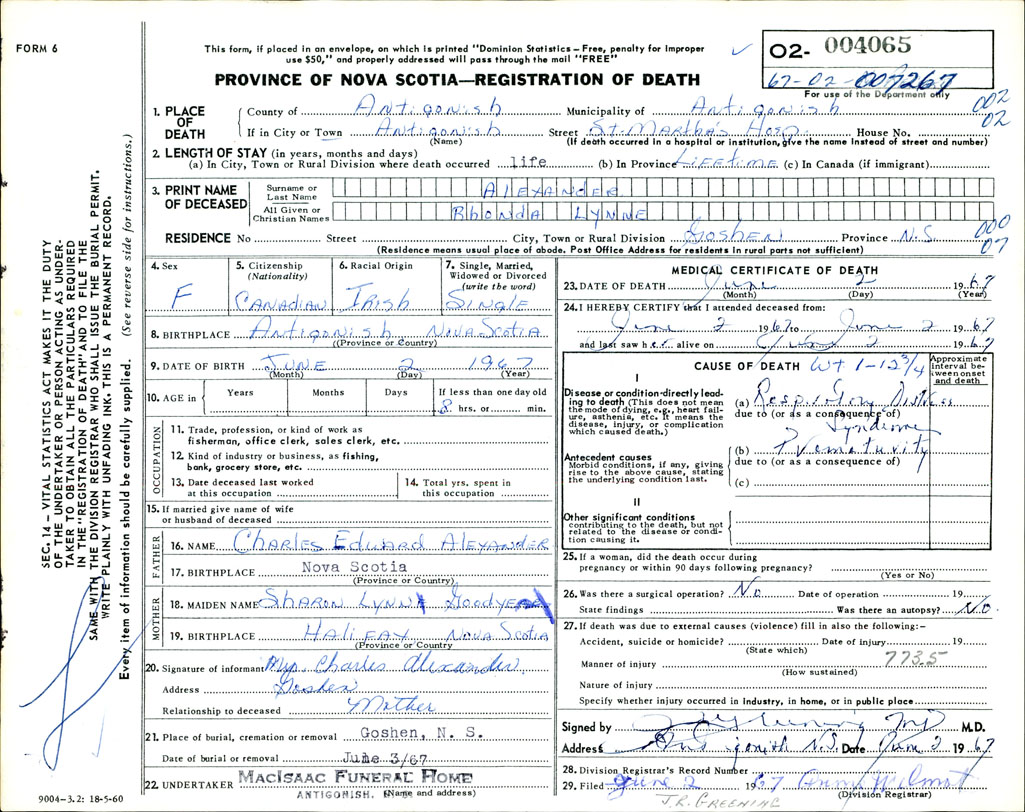 FORM 6
This form, if placed in an envelope, on which is printed "Dominion Statistics – Free, penalty for improper
use $50," and properly addressed will pass through the mail "FREE"
PROVINCE OF NOVA SCOTIA—REGISTRATION OF DEATH
O2- 004065
67-02-007267
For use of the Department only
002
02
1. PLACE OF DEATH
County of Antigonish Municipality of Antigonish
If in City or Town Antigonish Street St. Martha's Hosp. House No.
(Name) (If death occurred in a hospital or institution, give the name instead of street and number)
2. LENGTH OF STAY (in years, months and days)
(a) In City, Town or Rural Division where death occurred life (b) In Province Lifetime (c) In Canada (if immigrant)
3. PRINT NAME OF DECEASED
Surname or Last Name ALEXANDER
All Given or Christian Names RHONDA LYNNE
RESIDENCE No Street City, Town or Rural Division GOSHEN Province N.S.
(Residence means usual place of abode. Post Office Address for residents in rural parts not sufficient)
000
07
4. Sex F
5. Citizenship (Nationality) CANADIAN
6. Racial Origin IRISH
7. Single, Married, Widowed or Divorced (write the word) SINGLE
8. BIRTHPLACE Antigonish Nova Scotia
(Province or Country)
9. DATE OF BIRTH JUNE 2 1967
(Month) (Day) (Year)
10. AGE in Years Months Days If less than one day old
8 hrs. or min.
OCCUPATION
11. Trade, profession, or kind of work as
fisherman, office clerk, sales clerk, etc.
12. Kind of industry or business, as fishing,
bank, grocery store, etc.
13. Date deceased last worked
at this occupation
14. Total yrs. spent in
this occupation
15. If married give name of wife
or husband of deceased
FATHER
16. NAME Charles Edward Alexander
17. BIRTHPLACE Nova Scotia
(Province or Country)
MOTHER
18. MAIDEN NAME Sharon Lynn Goodyear
19. BIRTHPLACE Halifax Nova Scotia
(Province or Country
20. Signature of informant Mrs. Charles Alexander
Address Goshen
Relationship to deceased Mother
21. Place of burial, cremation or removal Goshen, N. S.
Date of burial or removal June 3/67
22. UNDERTAKER MACISAAC FUNERAL HOME
ANTIGONISH. (Name and address)
MEDICAL CERTIFICATE OF DEATH
23. DATE OF DEATH June 2 1967
(Month) (Day) (Year)
24. I HEREBY CERTIFY that I attended deceased from:
June 2 1967 to June 2 1967
and last saw her alive on June 2 1967
CAUSE OF DEATH Wt 1-12 3/4
Approximate interval between onset and death
I
Disease or condition directly leading to death (This does not mean the mode of dying, e.g., heart failure, asthenia, etc. It means the disease, injury, or complication which caused death.)
(a) Respiratory Distress
due to (or as a consequence of)
Syndrome
Antecedent causes
Morbid conditions, if any, giving rise to the above cause, stating the underlying condition last.
(b) Prematurity
due to (or as a consequence of)
(c)
II
Other significant conditions
contributing to the death, but not related to the disease or condition causing it.
25. If a woman, did the death occur during
pregnancy or within 90 days following pregnancy?
(Yes or No)
26. Was there a surgical operation? No Date of operation 19
State findings Was there an autopsy? No
27. If death was due to external causes (violence) fill in also the following:–
Accident, suicide or homicide? Date of injury 19
(State which)
Manner of injury 773.5
(How sustained)
Nature of injury
Specify whether injury occurred in industry, in home, or in public place
Signed by M.D.
Address Antigonish N.S. Date June 2 1967
28. Division Registrar's Record Number
29. Filed June 2 1967
(Division Registrar)
J.R. GREENING
9004–3.2: 18-5-60
SEC. 14 – VITAL STATISTICS ACT MAKES IT THE DUTY
OF THE UNDERTAKER OR PERSON ACTING AS UNDER-
TAKER TO OBTAIN ALL THE PARTICULARS REQUIRED
IN THE "REGISTRATION OF DEATH" AND TO FILE THE
SAME WITH THE DIVISION REGISTRAR WHO SHALL ISSUE THE BURIAL PERMIT.
WRITE PLAINLY WITH UNFADING INK. THIS IS A PERMANENT RECORD.
Every item of information should be carefully supplied. (See reverse side for instructions.)